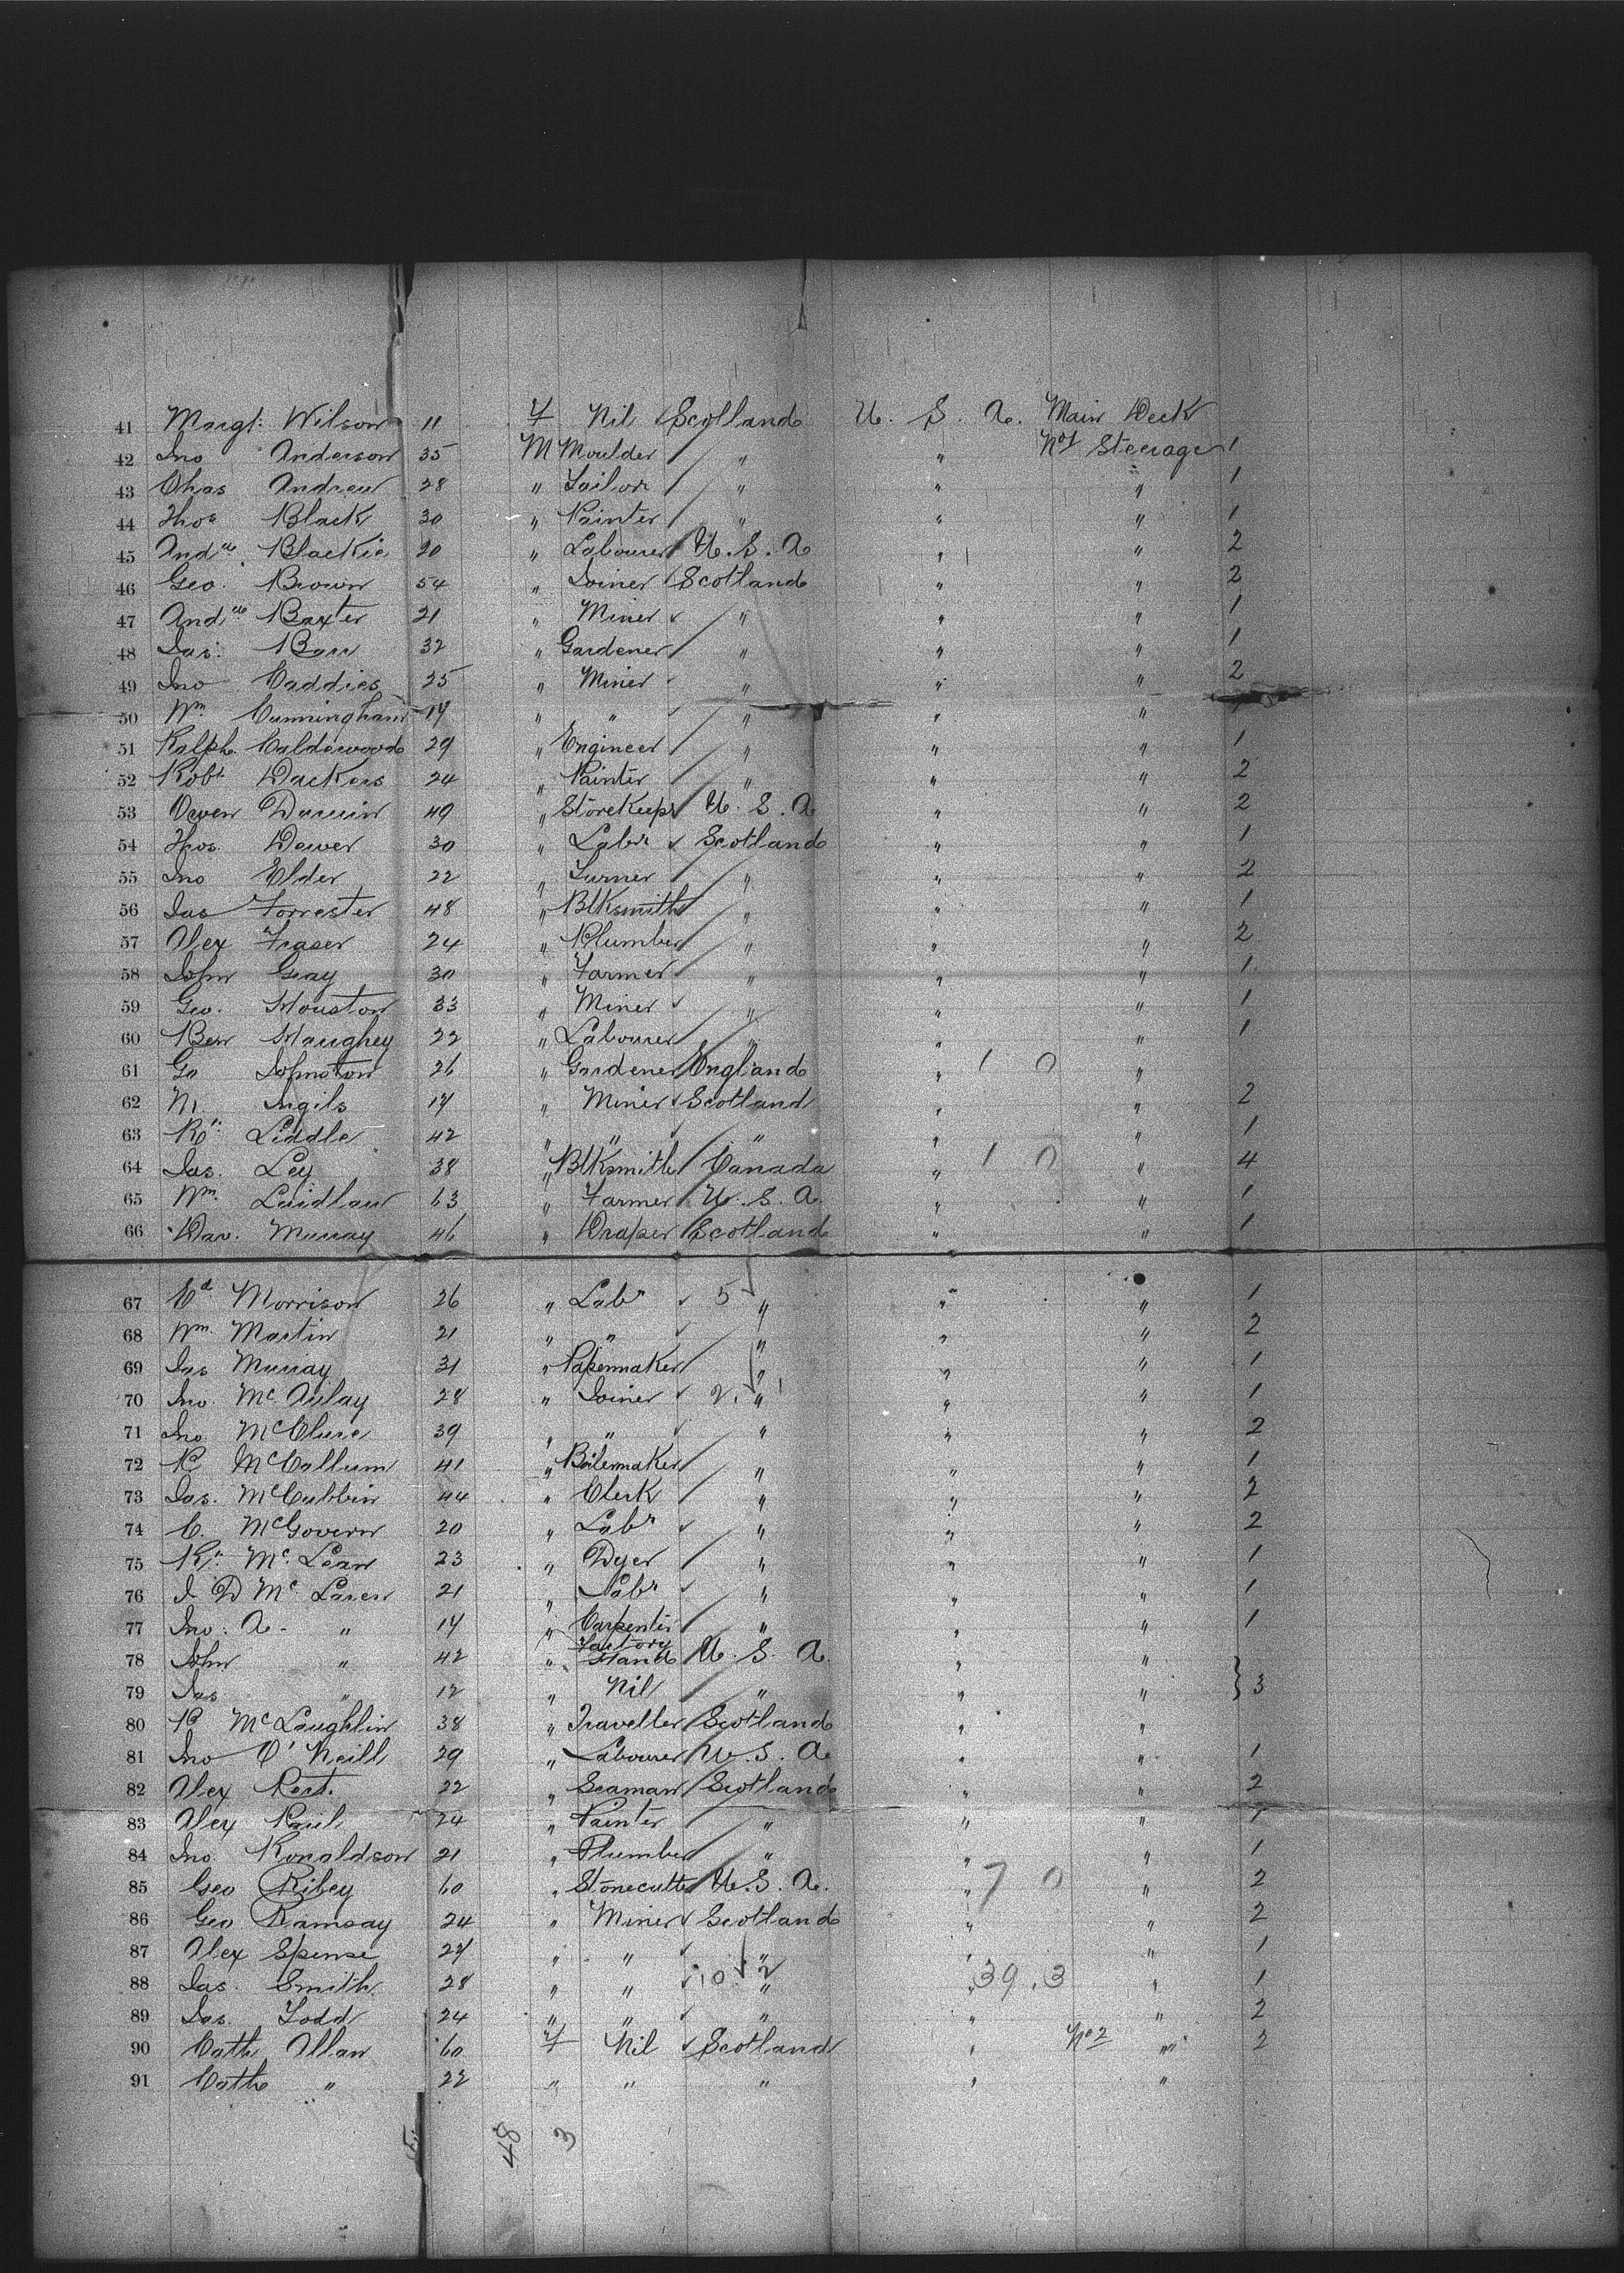 41 Margt. Wilson 11 F Nil Scotland U. S. A. Main Deck
42 Jno Anderson 35 M Moulder " " No 1 Steerage 1
43 Chas Andrew 28 " Tailor " " " 1
44 Thos Black 30 " Painter " " " 1
45 Andw Blackie 20 " Labourer U. S. A " " 2
46 Geo. Brown 54 " Joiner Scotland " " 2
47 Andw Baxter 21 " Miner " " " 1
48 Jas. Barr 32 " Gardener " " " 1
49 Jno Caddies 25 " Miner " " " 2
50 Wm. Cunningham 19 " " " " "
51 Ralph Calderwood 29 " Engineer " " " 1
52 Robt Dackers 24 " Painter " " " 2
53 Owen 49 " Storekeepr U. S. A " " 2
54 Thos. Dewer 30 " Labr Scotland " " 1
55 Jno Elder 22 " Turner " " " 2
56 Jas Forrester 48 " Blksmith " " " 1
57 Alex Fraser 24 " Plumber " " " 2
58 John Gray 30 " Farmer " " " 1
59 Geo. Houston 33 " Miner " " " 1
60 Ben Haughey 22 " Labourer " " " 1
61 Go Johnston 26 " Gardener England " 1 0 "
62 Ingils " Miner Scotland " " 2
63 Rt. Liddle 42 " " " " " 1
64 Jas. Ley 38 " Blksmith Canada " 1 0 " 4
65 Wm. Laidlaw 63 " Farmer U. S. A. " " 1
66 Dav. Murray 46 " Draper Scotland " " 1
67 Ed Morrison 26 " Labr 5 " " " 1
68 Wm. Martin 21 " " " " " 2
69 Jas Murray 31 " Papermaker " " " 1
70 Jno. McAulay 28 " Joiner 2 " " " 1
71 Jno McClure 39 " " " " " 2
72 P McCallum 41 " Boilermaker " " " 1
73 Jas. McCubbin 44 " Clerk " " " 2
74 C. McGovern 20 " Labr " " " 2
75 Rt. Mc. Lean 23 " Dyer " " " 1
76 J D Mc Laren 21 " Labr " " " 1
77 Jno. A " 19 " Carpenter " " " 1
78 John " 42 " Factory Hand U. S. A. " "
79 Jas " 12 " Nil " " " } 3
80 P McLaughlin 38 " Traveller Scotland " "
81 Jno O'Neill 29 " Labourer U. S. A " " 1
82 Alex 22 " Seaman Scotland " " 2
83 Alex Paul 24 " Painter " " " 1
84 Jno. Ronaldson 21 " Plumber " " " 1
85 Geo Riley 60 " Stonecutter U. S. A. " 7 0 " 2
86 Geo Ramsay 24 " Miner Scotland " " 2
87 Alex Spense " " " " " 1
88 Jas. Smith 28 " " 10 2 " " 39.3 " 1
89 Jas. Todd 24 " " " " " 2
90 Cath Allan 60 F Nil Scotland " No 2 " 2
91 Cath " 22 " " " " "
48 3